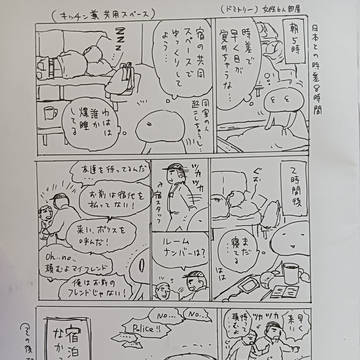 日本との時差8時間
（ドミトリー）女性6人部屋
朝5時
時差で
早く目が
覚めちゃうな…
同室の人
起こしちゃうし…
（キッチン兼共用スペース）
宿の共同
スペースで
ゆっくりして
よう…
NNN
誰か
爆睡
してる
2時間後
まだ
寝てる
はは
ツカ
ツカ
宿スタッフ
ルーム
ナンバーは？
友達を待ってるんだ
お前は宿代を
払ってない！
来い、ポリスを
呼んだ！
Oh…no…
頼むよマイフレンド
俺はお前の
フレンドじゃない！
早く
来い
ツカ
ツカ
No…
No…
Police!!
宿泊
なか